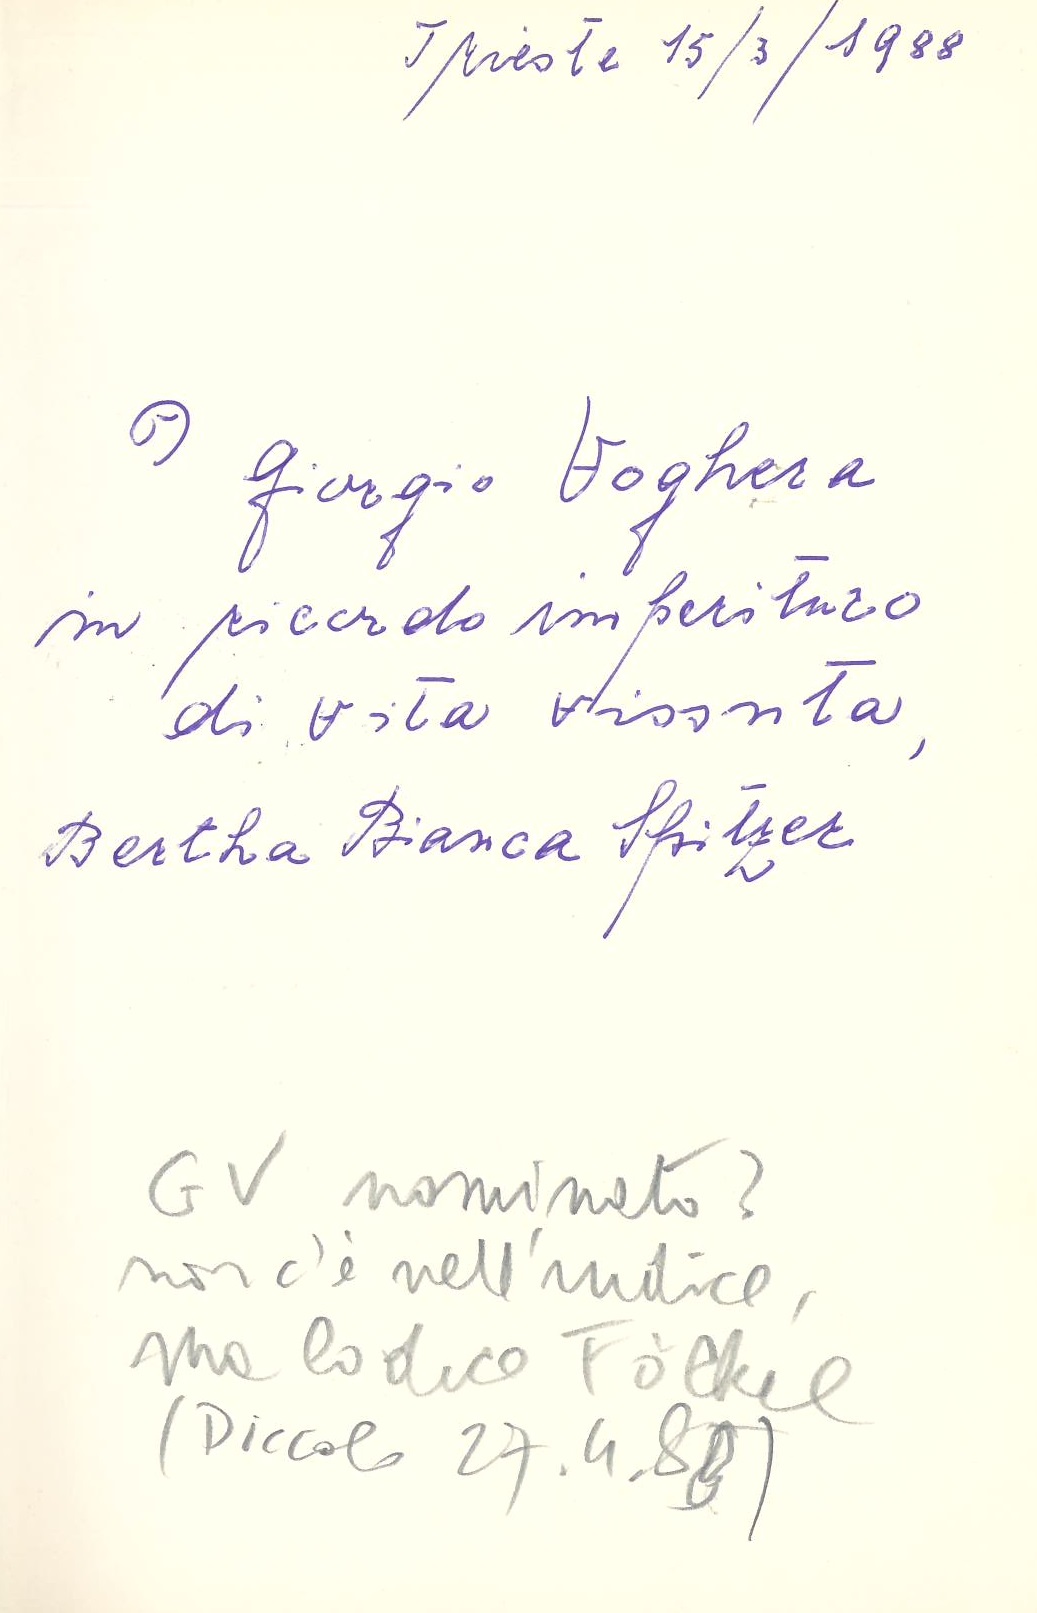 Trieste 15/3/1988
Giorgio Voghera
in ricordo imperituro
di vita vissuta,
Bertha Bianca Spitzer
GV nominato?
non c'è nell'indice,
ma lo dice Fölkel
(Piccolo 27.4.88)